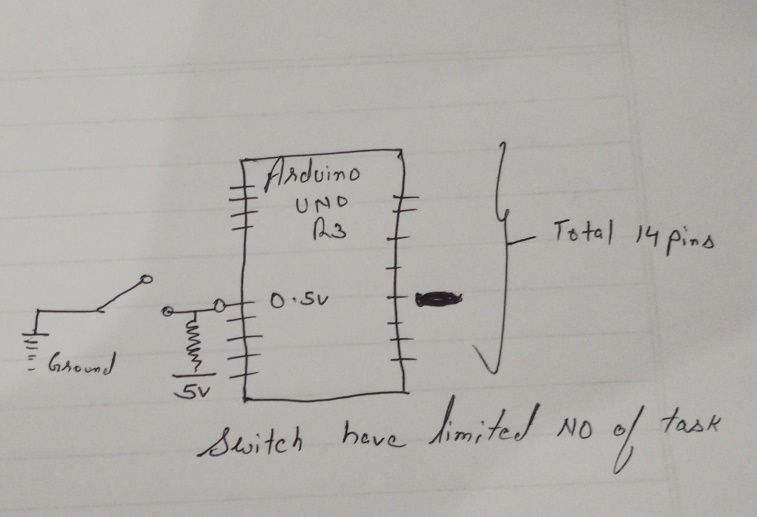 Arduino
UNO
R3
Total 14 pins
0.5V
Ground
5V
Switch have limited NO of task